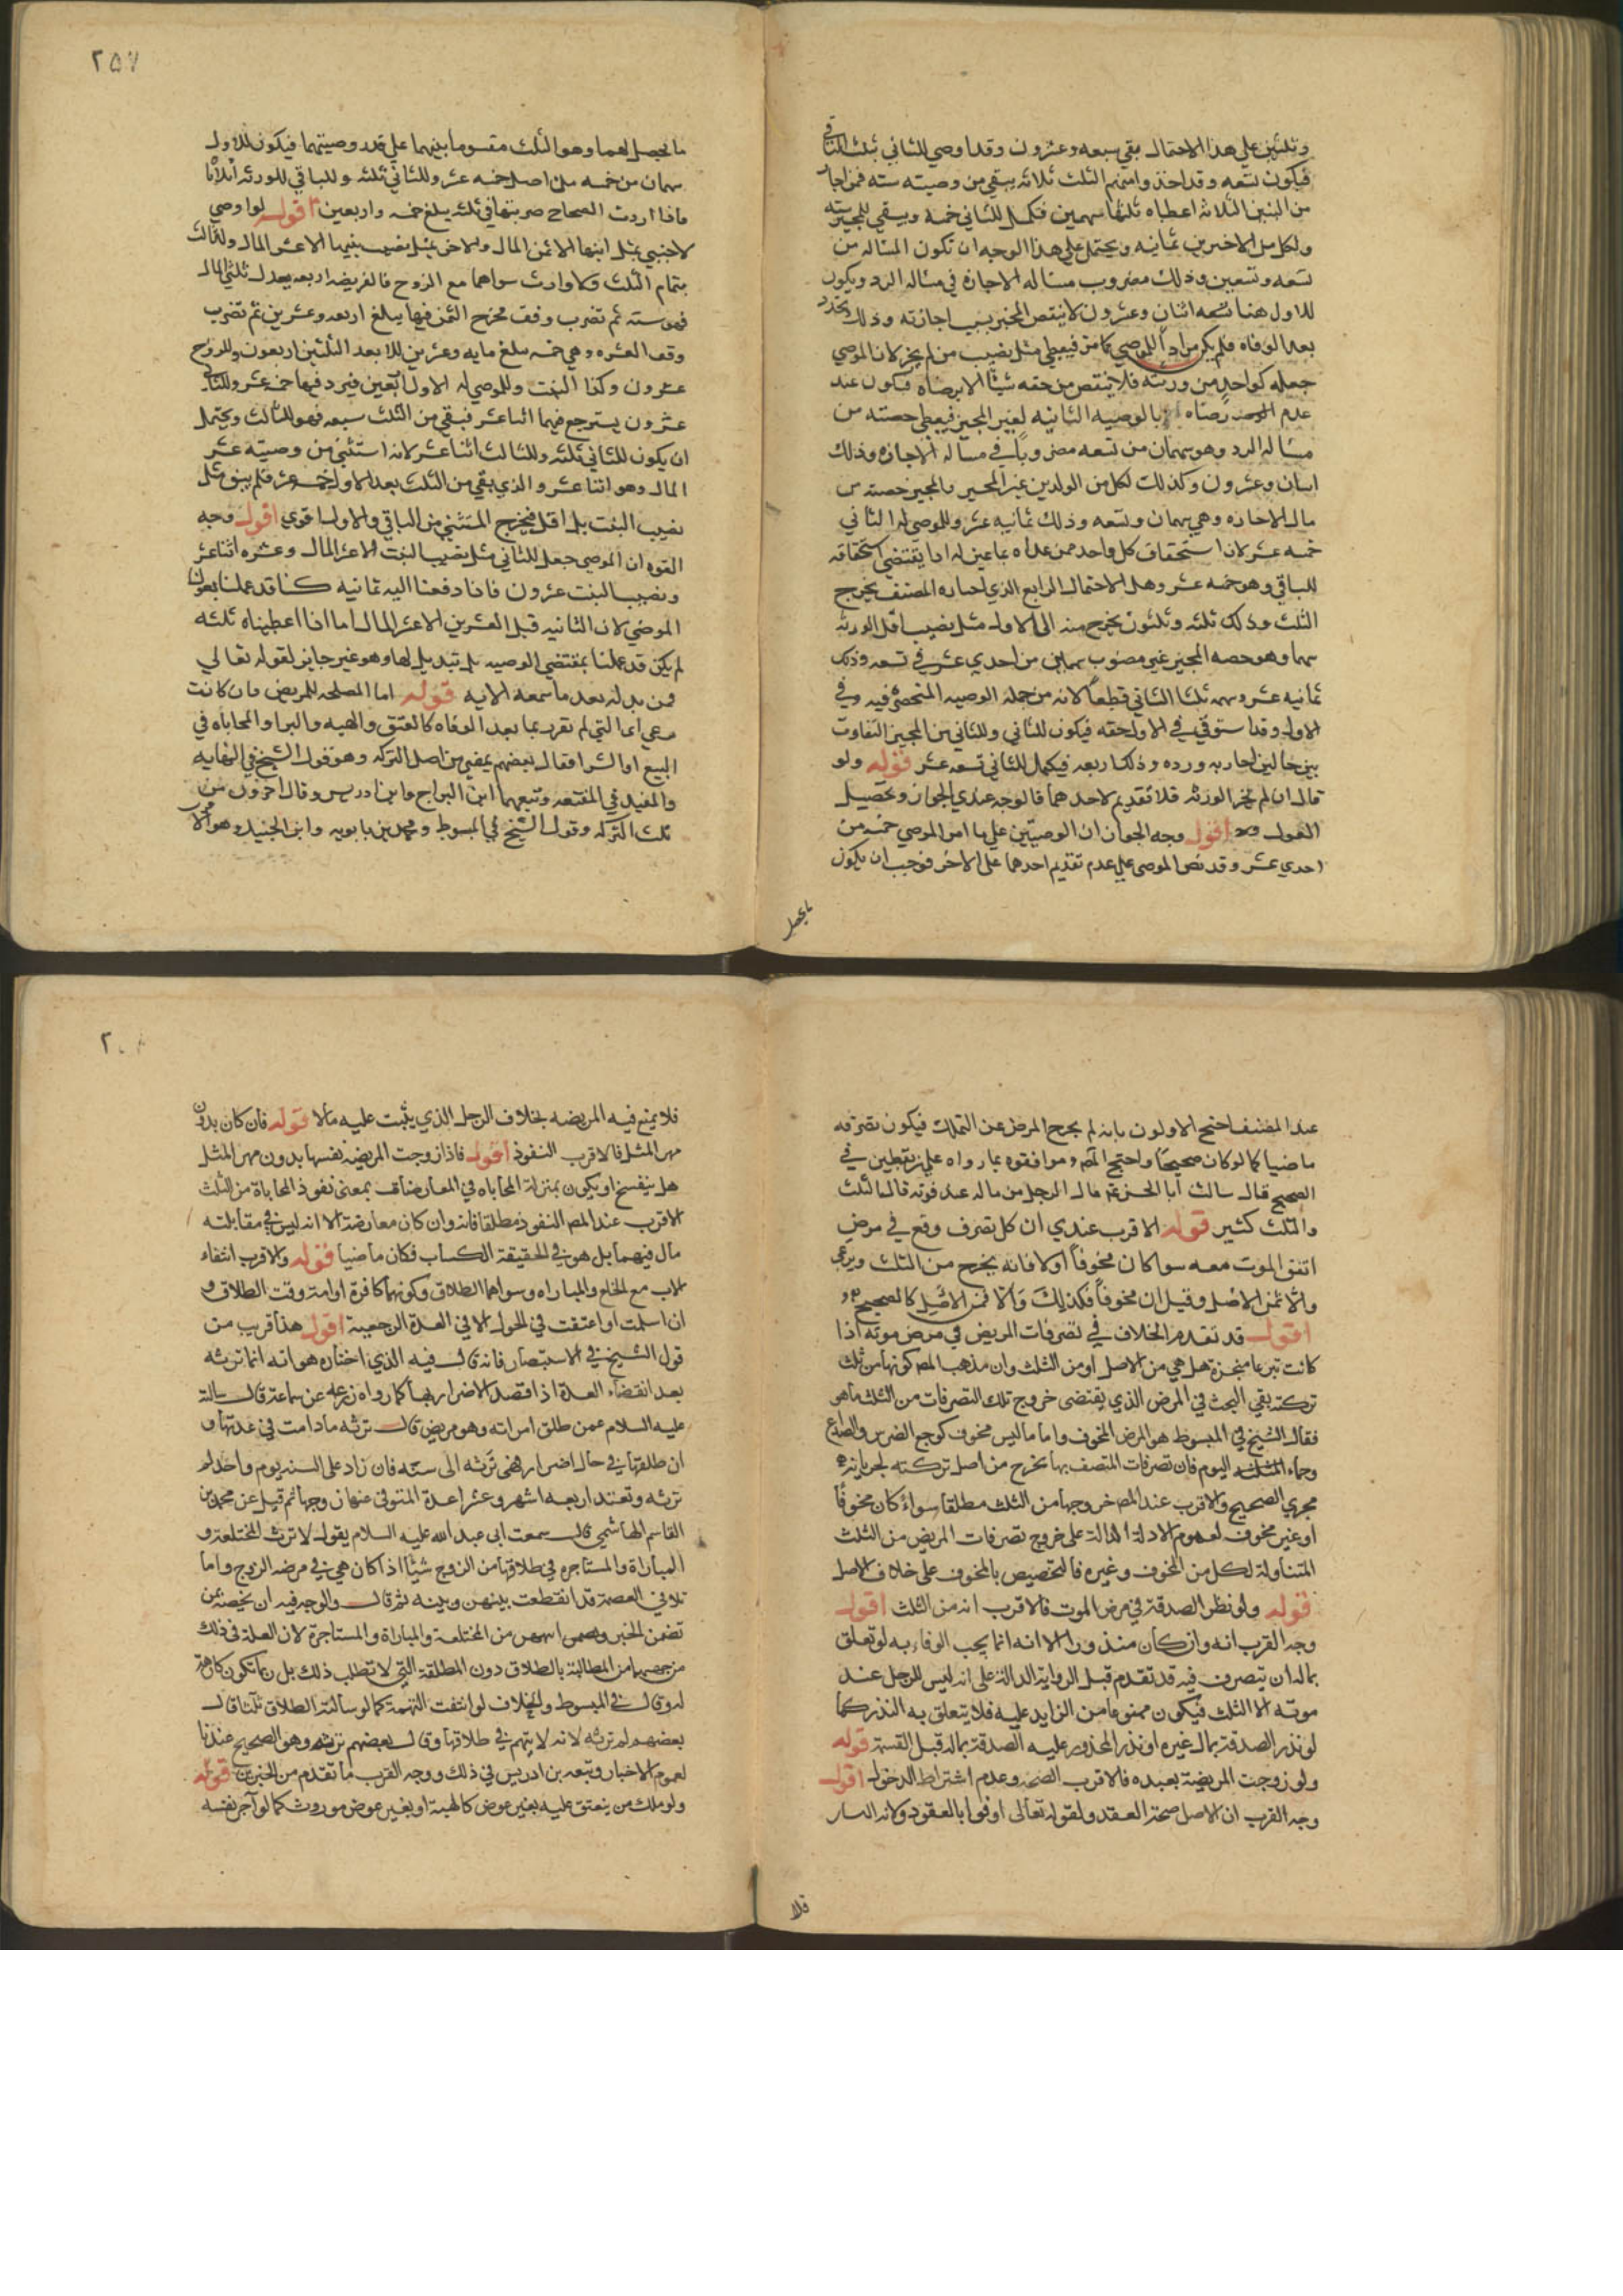 وثلثين علي هذا الاحتمال بقي سبعه وعشرون وقد اوصي للثاني بثلث الباقي
فيكون تسعه وقد اخذ وامنهم الثلث ثلاثه يبقي من وصيته سته فمن اجاز
من البنين الثلاثه اعطاه ثلثها سهمين فكمل للثاني خمسة ويبقي للمجيز سته
ولكل من الاخيرين ثمانيه ويحتمل علي هذا الوجه ان تكون المساله من
تسعه وتسعين وذلك مضروب مساله الاجازه في مساله الرد ويكون
للاول هنا تسعه اثنان وعشرون لا ينتقص المجيز بسبب اجازته وذلك تجدد
بعد الوفاه فلم يكن مراد الموصي كما مر فيعطي مثل نصيب من لم يجز لان الموصي
جعله كواحد من ورثته فلا ينتقص من حقه شيئا الا برضاه فيكون عند
عدم رضاه بالوصيه الثانيه لغير المجيز فيعطي حصته من
مساله الرد وهو سهمان من تسعه مضروبا في مساله الاجازه وذلك
اثنان وعشرون وكذلك لكل من الولدين غير المجيز والمجيز حصته من
مساله الاجازه وهي سهمان وتسعه وذلك ثمانيه عشر وللموصي له الثاني
خمسه عشر لان استحقاق كل واحد ممن عداه بما عين له يقتضي استحقاقه
للباقي وهو خمسه عشر وهذا الاحتمال الرابع الذي اختاره المصنف يخرج
الثلث وذلك ثلثه وثلثون يخرج منه الي الاول مثل نصيب اقل الورثه
سهما وهو حصه المجيز غير مضروب سهمان من احدي عشر في تسعه وذلك
ثمانيه عشر وسهمه ثلثا الثاني قطعا لانه من جمله الوصيه المنحصره فيه وفي
الاول وقد استوفي في الاول حقه فيكون للثاني وللثاني من المجيز التفاوت
بين حالتي اجازته ورده وذلك اربعه فيكمل للثاني تسعه عشر قوله ولو
قال ان لم يجز الورثه فلا تقديم لاحدهما فالوجه عندي الجواز وتحصيل
القول اقول وجه الجواز ان الوصيتين علي ما امر الموصي خمسه من
احدي عشر وقد نص الموصي علي عدم تقديم احدهما علي الاخر فوجب ان يكون
ما يحصل
٢٥٧
ما يحصل لهما وهو الثلث مقسوما بينهما علي قدر وصيتهما فيكون للاول
سهمان من خمسه من اصل خمسه عشر وللثاني ثلثه وللباقي للورثه اثلاثا
فاذا اردت الصحاح ضربتها في ثلثه يبلغ خمسه واربعين اقول لو اوصي
لاجنبي بمثل ابنها الا ثمن المال ولاخر بمثل نصيب بنتها الا عشر المال ولثالث
بتمام الثلث ولا وارث سواهما مع الزوج فالفريضه اربعه يعدل ثلثي المال
فهو سته ثم تضرب وفق مخرج الثمن فيها يبلغ اربعه وعشرين ثم تضرب
وفق العشره وهي خمسه يبلغ مايه وعشرين للابعد الثلثين اربعون وللزوج
عشرون وكذا البنت وللموصي له الاول اربعين فيرد فيها خمسه عشر وللثاني
عشرون يسترجع فيها اثنا عشر فبقي من الثلث سبعه فهو للثالث ويحتمل
ان يكون للثاني ثلثه وللثالث اثنا عشر لانه استثني من وصيته عشر
المال وهو اثنا عشر والذي بقي من الثلث بعد الاول خمسه عشر فلم يبق مثل
نصيب البنت بل اقل فيخرج المستثني من الباقي والاول اقوي اقول وجه
القوه ان الموصي جعل للثاني مثل نصيب البنت الا عشر المال وعشره اثنا عشر
ونصيب البنت عشرون فاذا دفعنا اليه ثمانيه كنا قد عملنا بقول
الموصي لان الثمانيه قبل العشرين الا عشر المال اما اذا اعطيناه ثلثه
لم يكن قد عملنا بمقتضي الوصيه بل تبديل لها وهو غير جايز لقوله تعالي
فمن بدله بعد ما سمعه الايه قوله اما المصلحه للمريض فان كانت
التي لم تقرر بما بعد الوفاه كالعتق والهبه والبرا والمحاباه في
البيع او الشرا فقال بعضهم يمضي من اصل التركه وهو قول الشيخ في النهايه
والمفيد في المقنعه وتبعهما ابن البراج وابن ادريس وقال اخرون من
ثلث التركه وقول الشيخ في المبسوط ومحمد بن بابويه وابن الجنيد وهو الاقوي
عند المصنف احتج الاولون بانه لم يخرج المرض عن التملك فيكون تصرفه
ماضيا كما لو كان صحيحا واحتج المص وموافقوه بما رواه علي بن يقطين في
الصحيح قال سالت ابا الحسن ع م ما للرجل من ماله عند موته قال الثلث
والثلث كثير قوله الاقرب عندي ان كل تصرف وقع في مرض
اتفق الموت معه سوا كان مخوفا او لا فانه يخرج من الثلث وبرئ
والا فمن الاصل وقيل ان مخوفا فكذلك والا فمن الاصل كالصحيح
اقول قد تقدم الخلاف في تصرفات المريض في مرض موته اذا
كانت تبرعا منجزة هل هي من الاصل او من الثلث وان مذهب المص كونها من ثلث
تركته بقي البحث في المرض الذي يقتضي خروج تلك التصرفات من الثلث ما هو
فقال الشيخ في المبسوط هو المرض المخوف واما ما ليس مخوف كوجع الضرس والصداع
وحماء اليوم فان تصرفات المتصف بها تخرج من اصل تركته لجريانه
مجري الصحيح والاقرب عند المص خروجها من الثلث مطلقا سواء كان مخوفا
او غير مخوف لعموم الادلة الدالة على خروج تصرفات المريض من الثلث
المتناولة لكل من المخوف وغيره فالتخصيص بالمخوف على خلاف الاصل
قوله ولو نظر الصدقة في مرض الموت فالاقرب انه من الثلث اقول
وجه القرب انه وان كان منذورا الا انه انما يجب الوفاء به لو تعلق
بماله ان يتصرف فيه قد تقدم قبل الرواية الدالة على انه ليس للرجل عند
موته الا الثلث فيكون ممنوعا من الزايد عليه فلا يتعلق به النذر كما
لو نذر الصدقة بمال غيره او نذر المحجور عليه الصدقة بماله قبل القسمة قوله
ولو زوجت المريضة بعبده فالاقرب الصحه وعدم اشتراط الدخول اقول
وجه القرب ان الاصل صحة العقد ولقوله تعالى اوفوا بالعقود ولانه
فلا
٢
فلا يمنع فيه المريضه بخلاف الرجل الذي يثبت عليه مالا قوله فان كان بدون
مهر المثل فالاقرب النفوذ اقول فاذا زوجت المريضه نفسها بدون مهر المثل
هل ينفسخ او يكون بمنزلة المحاباه في المعاوضات بمعنى نفوذ المحاباة من الثلث
الاقرب عند المص النفوذ مطلقا فانه وان كان معاوضة الا انه ليس في مقابلته
مال فيهما بل هو في الحقيقة اكتساب فكان ماضيا قوله والاقرب انتفاء
الارث مع الخلع والمباراه وسواهما الطلاق وكونها كافرة او امة وقت الطلاق و
ان اسلمت او اعتقت في الحول الا في العدة الرجعية اقول هذا قريب من
قول الشيخ في الاستبصار فانه قال فيه الذي اختاره هو انه انما ترثه
بعد انقضاء العدة اذا قصد الاضرار بها كما رواه زرعه عن سماعة قال سالته
عليه السلام عمن طلق امراته وهو مريض قال ترثه مادامت في عدتها و
ان طلقها في حال اضرار فهي ترثه الى سنه فان زاد على السنه يوم واحد لم
ترثه وتعتد اربعه اشهر وعشرا عدة المتوفى عنها زوجها ثم قيل عن محمد بن
القاسم الهاشمي قال سمعت ابي عبد الله عليه السلام يقول لا ترث المختلعة و
المباراة والمستاجره في طلاقها من الزوج شيئا اذا كان هي في مرضه الزوج واما
تلا في العصمة قد انقطعت بينهن وبينه ثم قال والوجه فيه ان يخصه بمن
تضمن الخبر من المختلعة والمباراة والمستاجرة لان العلة في ذلك
من جهتها من المطالبة بالطلاق دون المطلقة التي لا تطلب ذلك بل ربما تكون كارهة
له وقال في المبسوط والخلاف لو انتفت التهمة كما لو سالته الطلاق ثلثا قال
بعضهم لم ترثه لانه لا يتهم في طلاقها وقال بعضهم ترثه وهو الصحيح عندنا
لعموم الاخبار وتبعه بن ادريس في ذلك ووجه القرب ما تقدم من الخبرين قوله
ولو ملك من ينعتق عليه بغير عوض كالهبة او بغير عوض موروث كما لو آجر نفسه